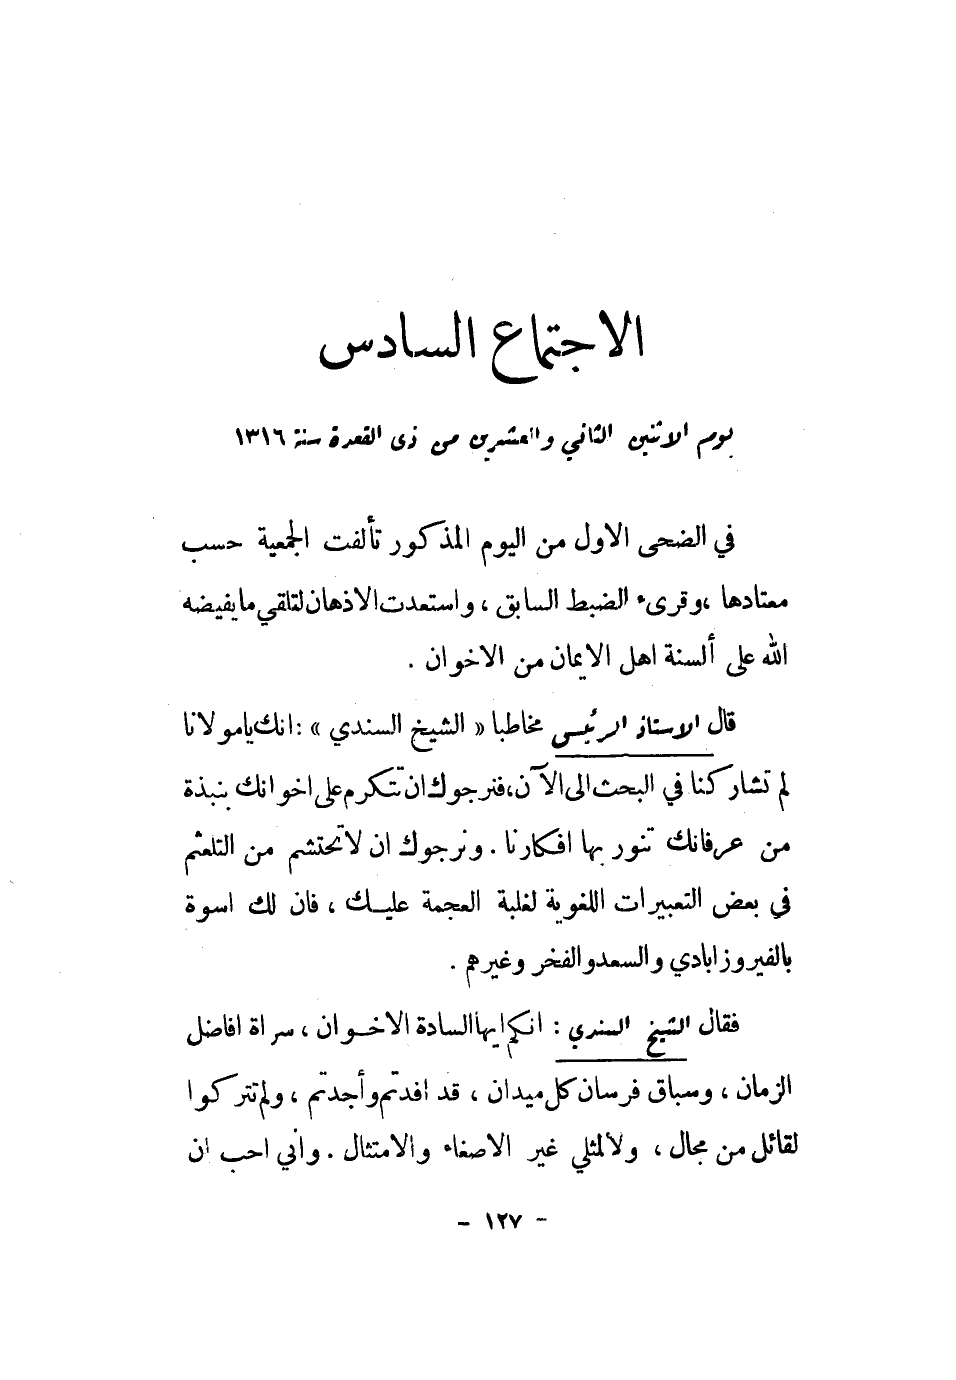 الاجتماع السادس
يوم الاثنين الثاني والعشرين من ذى القعدة سنة ١٣١٦
في الضحى الاول من اليوم المذكور تألفت الجمعية حسب
معتادها ،وقرىء الضبط السابق ، واستعدت الاذهان لتلقي ما يفيضه
الله على ألسنة اهل الايمان من الاخوان .
قال الاستاذ الرئيسي مخاطبا « الشيخ السندي » :انك يامولانا
لم تشاركنا في البحث الى الآن ،فنرجوك ان تتكرم على اخوانك بنبذة
من عرفانك تنور بها افكارنا . ونرجوك ان لا تحتشم من التلعثم
في بعض التعبيرات اللغوية لغلبة العجمة عليـــك ، فان لك اسوة
بالفيروزابادي والسعد والفخر وغيرهم .
فقال الشيخ السندي : انكم ايها السادة الاخــوان ، سراة افاضل
الزمان ، وسباق فرسان كل ميدان ، قد افدتم وأجدتم ، ولم تتركوا
لقائل من مجال ، ولا لمثلي غير الاصغاء والامتثال . واني احب ان
- ١٢٧ -